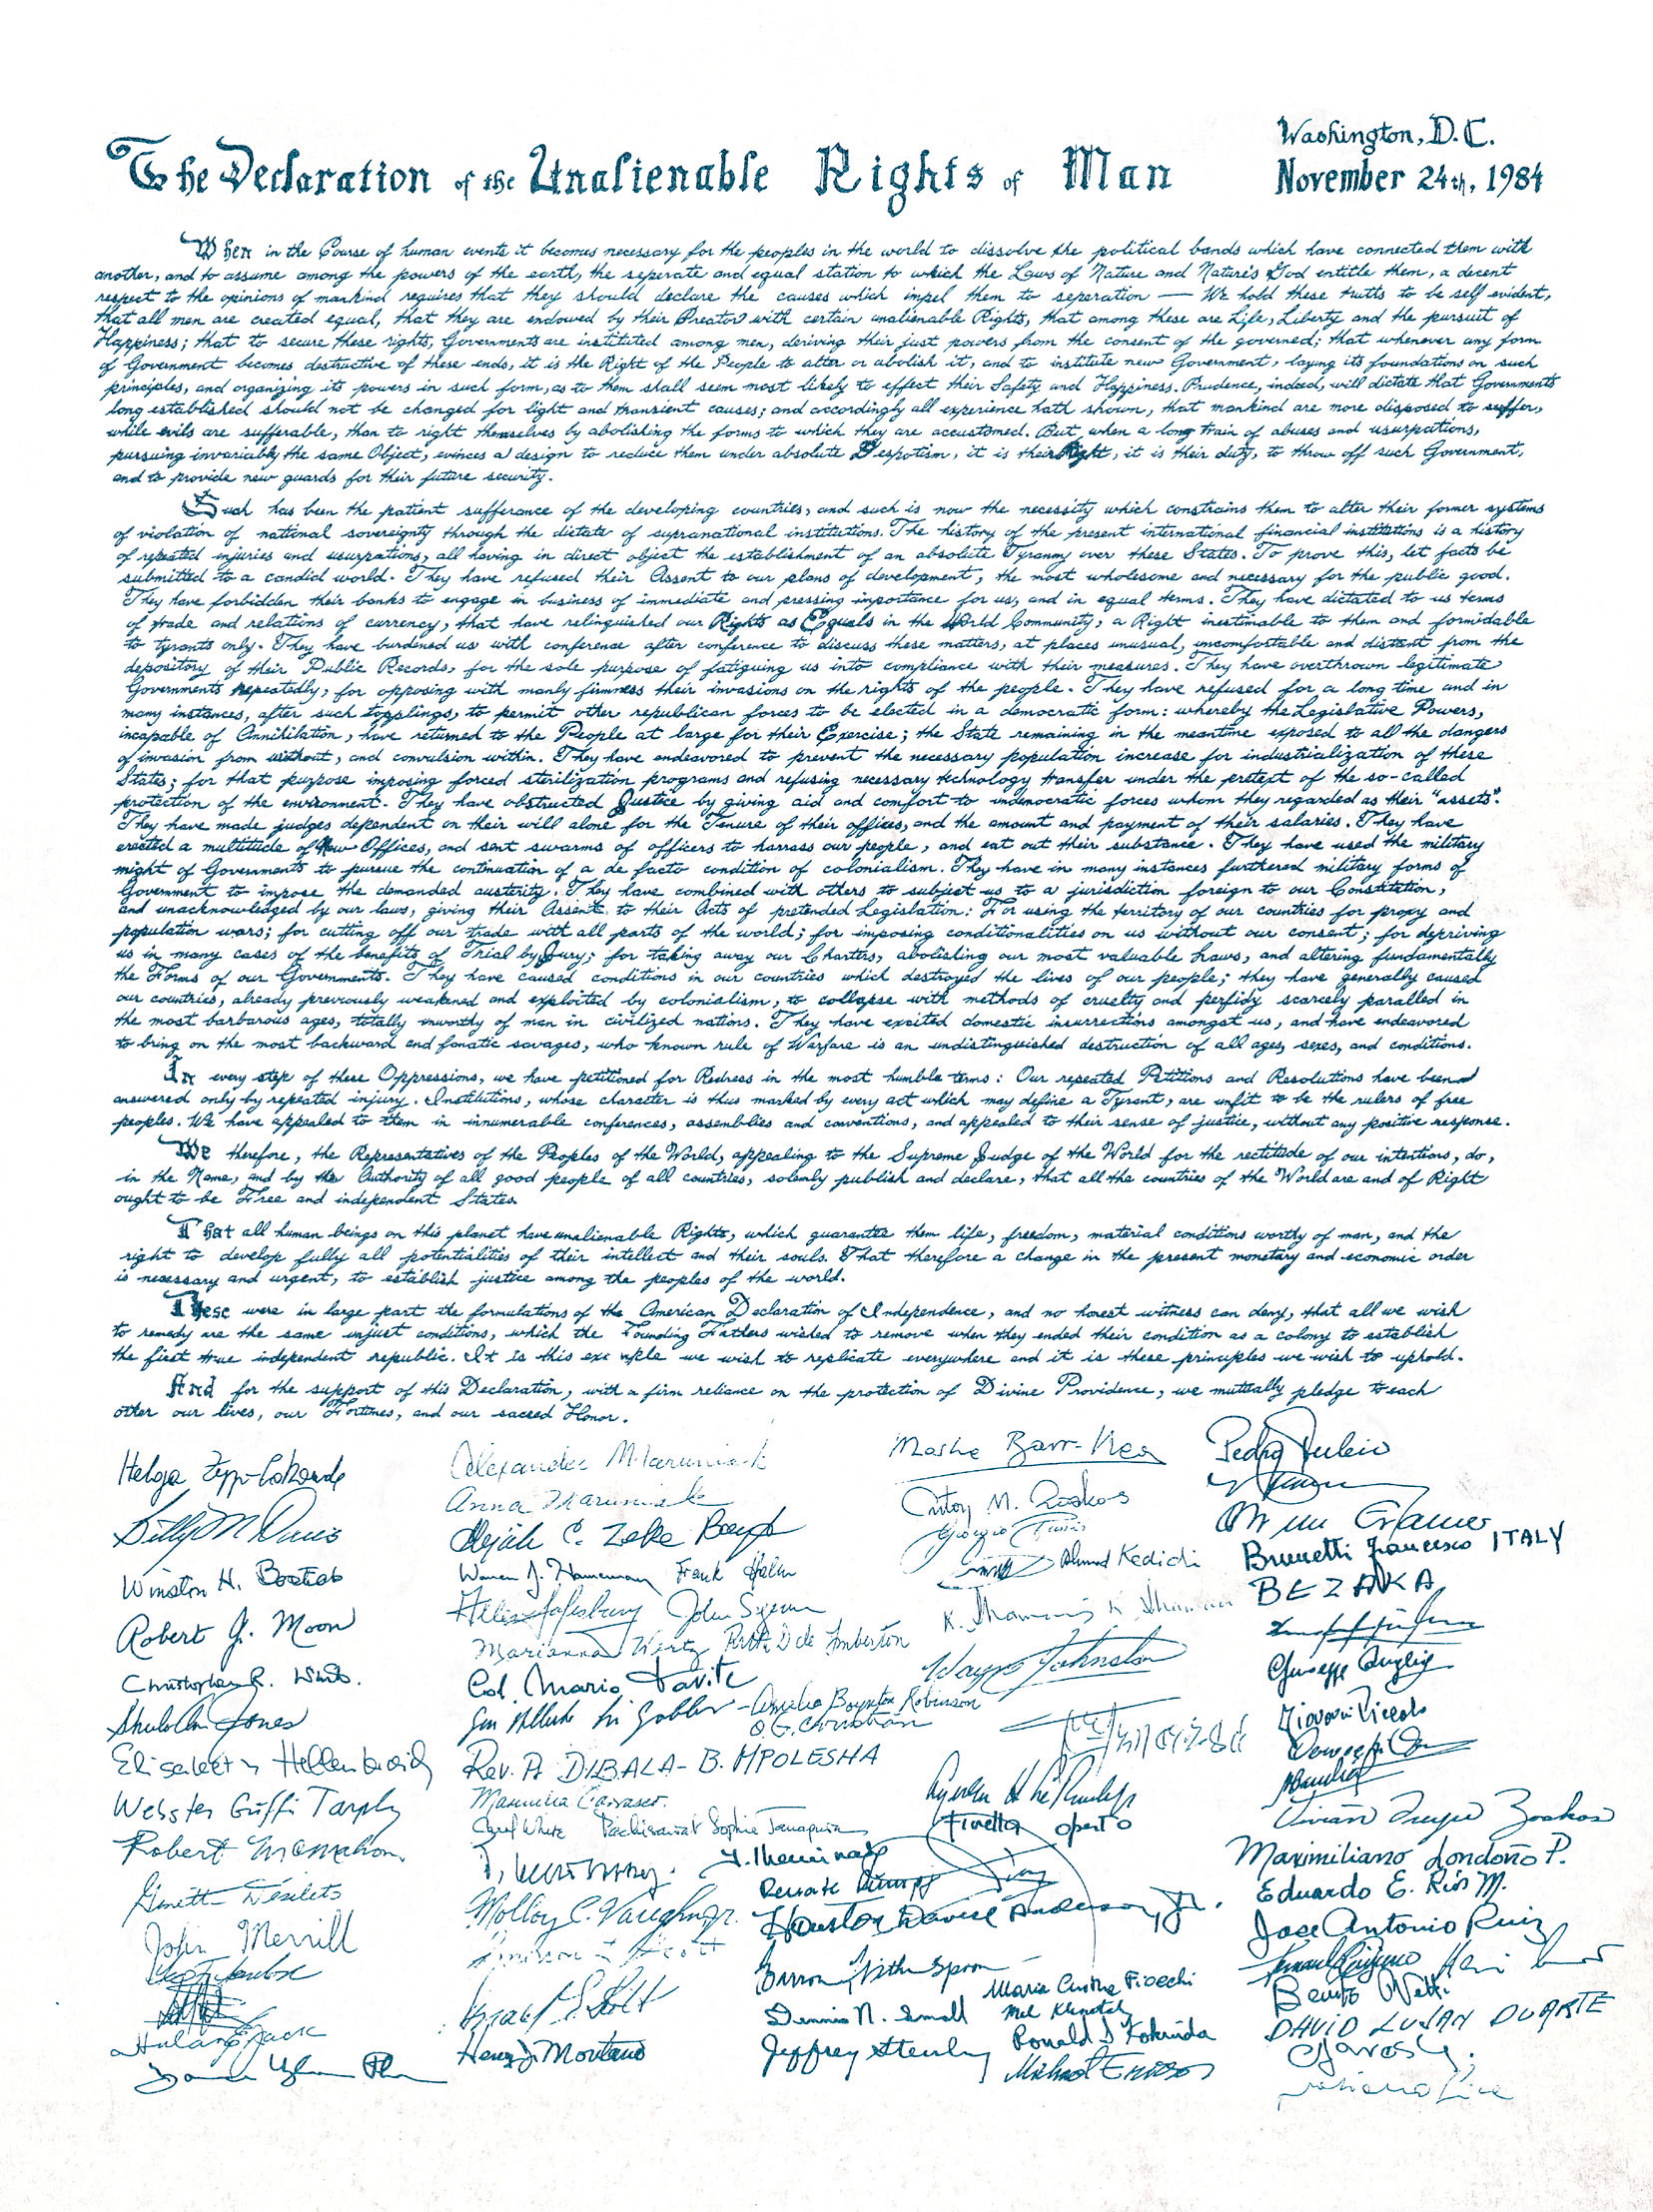 The Declaration of the Unalienable Rights of Man
Washington, D.C.
November 24th, 1984
When in the Course of human events it becomes necessary for the peoples in the world to dissolve the political bands which have connected them with
another, and to assume among the powers of the earth, the seperate and equal station to which the Laws of Nature and Nature's God entitle them, a decent
respect to the opinions of mankind requires that they should declare the causes which impel them to seperation — We hold these truths to be self evident,
that all men are created equal, that they are endowed by their Creator with certain unalienable Rights, that among these are Life, Liberty and the pursuit of
Happiness; that to secure these rights, Governments are instituted among men, deriving their just powers from the consent of the governed; that whenever any form
of Government becomes destructive of these ends, it is the Right of the People to alter or abolish it, and to institute new Government, laying its foundations on such
principles, and organizing its powers in such form, as to them shall seem most likely to effect their Safety and Happiness. Prudence, indeed, will dictate that Governments
long established should not be changed for light and transient causes; and accordingly all experience hath shown, that mankind are more disposed to suffer,
while evils are sufferable, than to right themselves by abolishing the forms to which they are accustomed. But when a long train of abuses and usurpations,
pursuing invariably the same Object, evinces a design to reduce them under absolute Despotism, it is their Right, it is their duty, to throw off such Government,
and to provide new guards for their future security.
Such has been the patient sufferance of the developing countries, and such is now the necessity which constrains them to alter their former systems
of violation of national sovereignty through the dictate of supranational institutions. The history of the present international financial institutions is a history
of repeated injuries and usurpations, all having in direct object the establishment of an absolute Tyranny over these States. To prove this, let facts be
submitted to a candid world. They have refused their Assent to our plans of development, the most wholesome and necessary for the public good.
They have forbidden their banks to engage in business of immediate and pressing importance for us, and in equal terms. They have dictated to us terms
of trade and relations of currency, that have relinquished our Rights as Equals in the World Community, a Right inestimable to them and formidable
to tyrants only. They have burdened us with conference after conference to discuss these matters, at places unusual, uncomfortable and distant from the
depository of their Public Records, for the sole purpose of fatiguing us into compliance with their measures. They have overthrown legitimate
Governments repeatedly, for opposing with manly firmness their invasions on the rights of the people. They have refused for a long time and in
many instances, after such topplings, to permit other republican forces to be elected in a democratic form: whereby the Legislative Powers,
incapable of Annihilation, have returned to the People at large for their Exercise; the State remaining in the meantime exposed to all the dangers
of invasion from without, and convulsion within. They have endeavored to prevent the necessary population increase for industrialization of these
States; for that purpose imposing forced sterilization programs and refusing necessary technology transfer under the pretext of the so-called
protection of the environment. They have obstructed Justice by giving aid and comfort to undemocratic forces whom they regarded as their "assets".
They have made judges dependent on their will alone for the Tenure of their offices, and the amount and payment of their salaries. They have
erected a multitude of New Offices, and sent swarms of officers to harrass our people, and eat out their substance. They have used the military
might of Governments to pursue the continuation of a de facto condition of colonialism. They have in many instances furthered military forms of
Government to impose the demanded austerity. They have combined with others to subject us to a jurisdiction foreign to our Constitution,
and unacknowledged by our laws, giving their Assent to their Acts of pretended Legislation: For using the territory of our countries for proxy and
population wars; for cutting off our trade with all parts of the world; for imposing conditionalities on us without our consent; for depriving
us in many cases of the benefits of Trial by Jury; for taking away our Charters, abolishing our most valuable Laws, and altering fundamentally
the Forms of our Governments. They have caused conditions in our countries which destroyed the lives of our people; they have generally caused
our countries, already previously weakened and exploited by colonialism, to collapse with methods of cruelty and perfidy scarcely paralled in
the most barbarous ages, totally unworthy of men in civilized nations. They have excited domestic insurrections amongst us, and have endeavored
to bring on the most backward and fanatic savages, who known rule of Warfare is an undistinguished destruction of all ages, sexes, and conditions.
In every step of these Oppressions, we have petitioned for Redress in the most humble terms: Our repeated Petitions and Resolutions have been
answered only by repeated injury. Institutions, whose character is thus marked by every act which may define a Tyrant, are unfit to be the rulers of free
peoples. We have appealed to them in innumerable conferences, assemblies and conventions, and appealed to their sense of justice, without any positive response.
We therefore, the Representatives of the Peoples of the World, appealing to the Supreme Judge of the World for the rectitude of our intentions, do,
in the Name, and by the Authority of all good people of all countries, solemly publish and declare, that all the countries of the World are and of Right
ought to be Free and independent States.
That all human beings on this planet have unalienable Rights, which guarantee them life, freedom, material conditions worthy of man, and the
right to develop fully all potentialities of their intellect and their souls. That therefore a change in the present monetary and economic order
is necessary and urgent, to establish justice among the peoples of the world.
These were in large part the formulations of the American Declaration of Independence, and no honest witness can deny, that all we wish
to remedy are the same unjust conditions, which the Founding Fathers wished to remove when they ended their condition as a colony to establish
the first true independent republic. It is this example we wish to replicate everywhere and it is these principles we wish to uphold.
And for the support of this Declaration, with a firm reliance on the protection of Divine Providence, we mutually pledge to each
other our lives, our Fortunes, and our sacred Honor.
Helga Zepp-LaRouche
Billy M Davis
Winston H.
Robert J. Moon
Christopher R. White
Sheila Anne Jones
Elisabeth Hellenbroich
Webster Griffin Tarpley
Robert McMahon
John Merrill
Hulan E Jack
Alexander
Anna
Elijah C. Zeke Boyd
Warren J. Hamerman Frank Hahn
Marianna Wertz
Col. Mario
Amelia Boynton Robinson
O. G. Christian
Rev. A DIBALA-B. MPOLESHA
Carol White Pachisawat Sophie Tanapura
Molloy C. Vaughn Jr.
Renate
Houston David Anderson, Jr.
Dennis N. Small
Maria Cristina Fiocchi
Mel Klenetsky
Ronald D Kokinda
Jeffrey Steinberg
Fiorella Operto
Moshe Barr-Nea
Antoy M.
Giorgio
Ahmed Kedidi
Wayne Johnston
Pedro Rubio
Brunetti Francesco ITALY
BEZAKA
Giuseppe
Giovanni
Vivian
Maximiliano Londoño P.
Eduardo E. Ríos M.
Jose Antonio Ruiz
Benito
DAVID LUJAN DUARTE